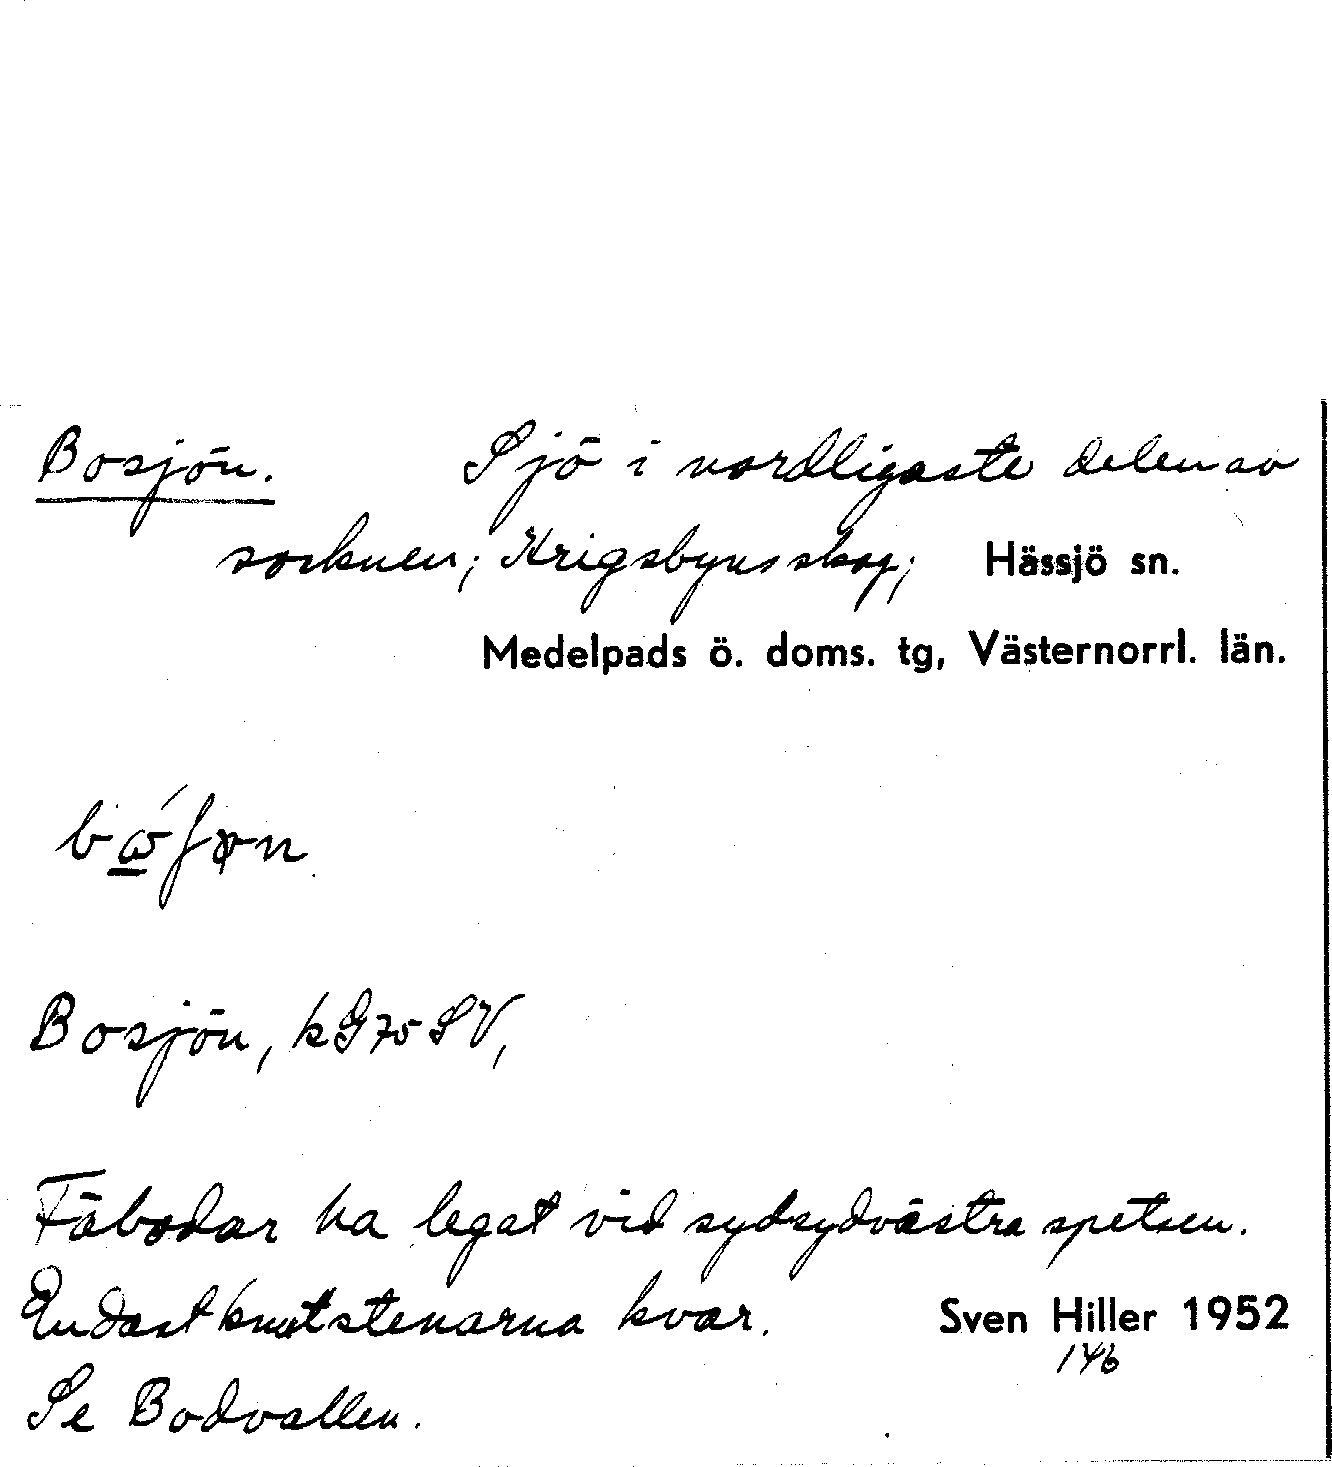 Bosjön. Sjö i nordligaste delen av
socknen; Krigsbyns skog; Hässjö sn.
Medelpads ö. doms. tg, Västernorrl. län.
Bosjön, k G75 SV,
Fäbodar ha legat vid sydsydvästra spetsen.
Endast knutstenarna kvar. Sven Hiller 1952
146
Se Bodvallen.